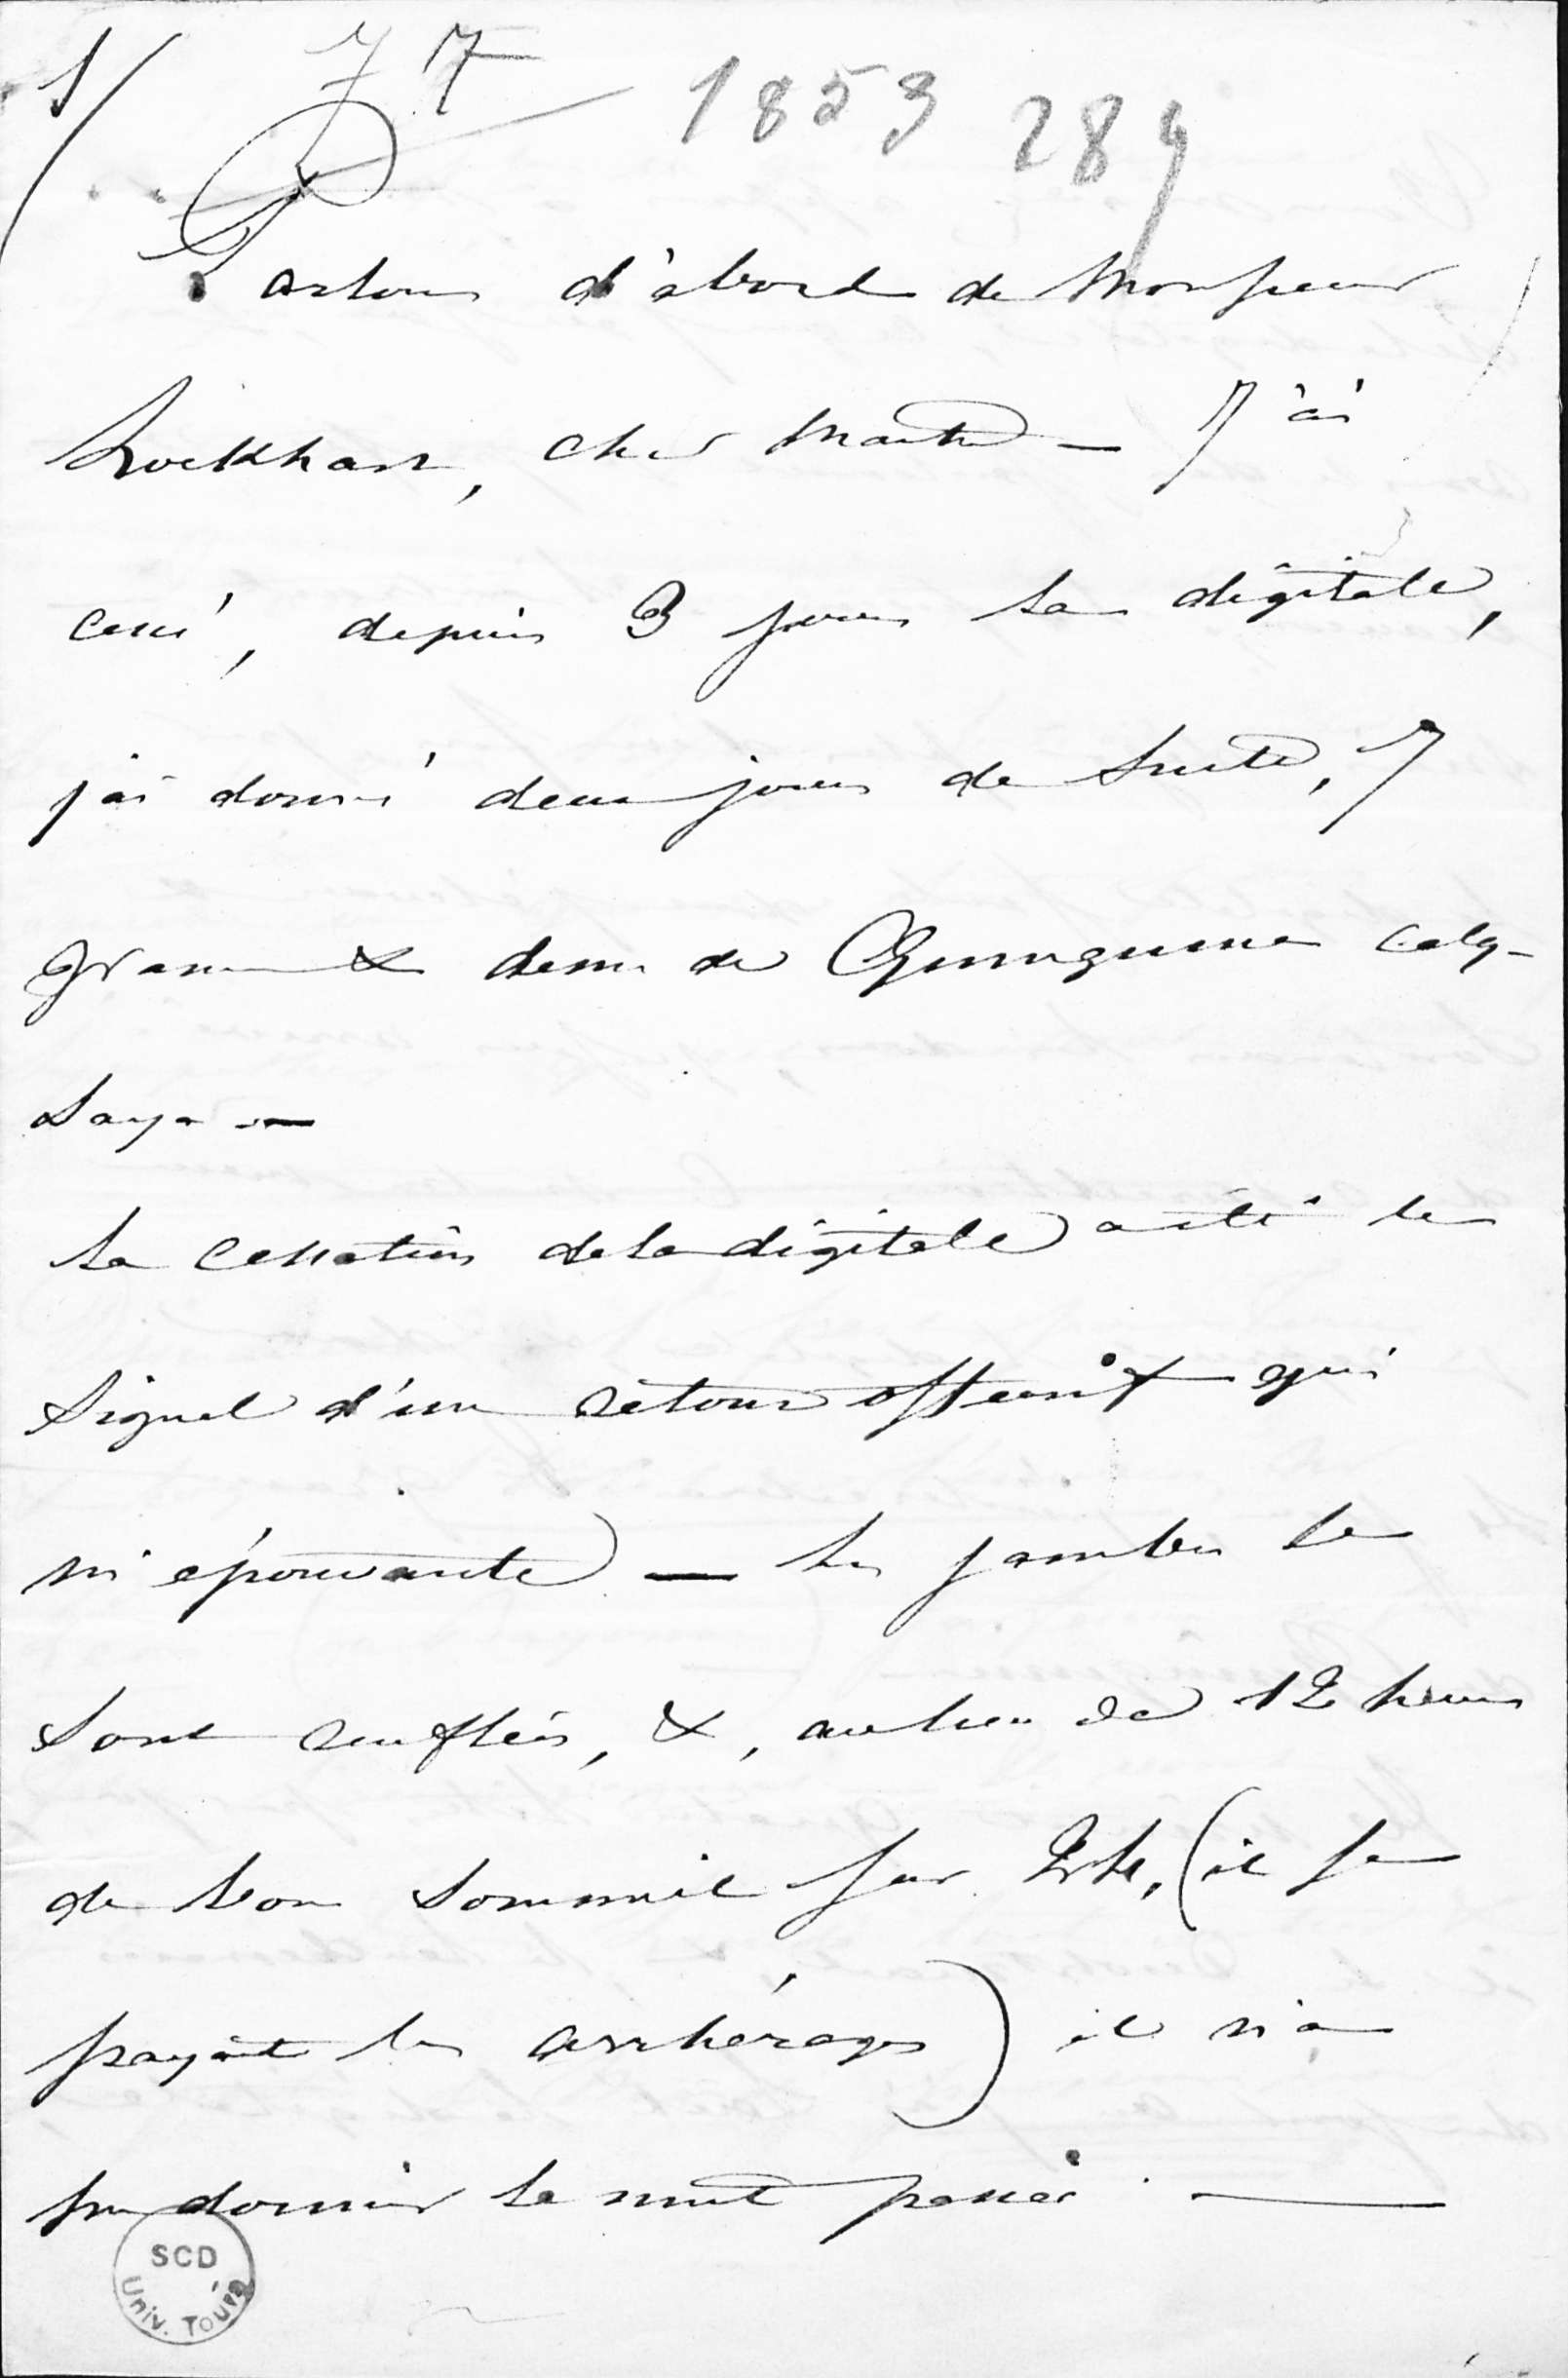 1/ 77 1853 289
Parlons d'abord de Monsieur
Lockhart, cher maître — J'ai
cessé, depuis 3 jours la digitale,
j'ai donné deux jours de suite, 7
gram & demi de Quinquina caly-
saya —
La cessation de la digitale a été le
signal d'un retour offensif qui
m'épouvante — les jambes se
sont renflées, &, au lieu de 12 heures
de bon sommeil sur 24, (il se
payait les arrhérages) il n'a
pu dormir la nuit passée —
SCD
Univ. Tours